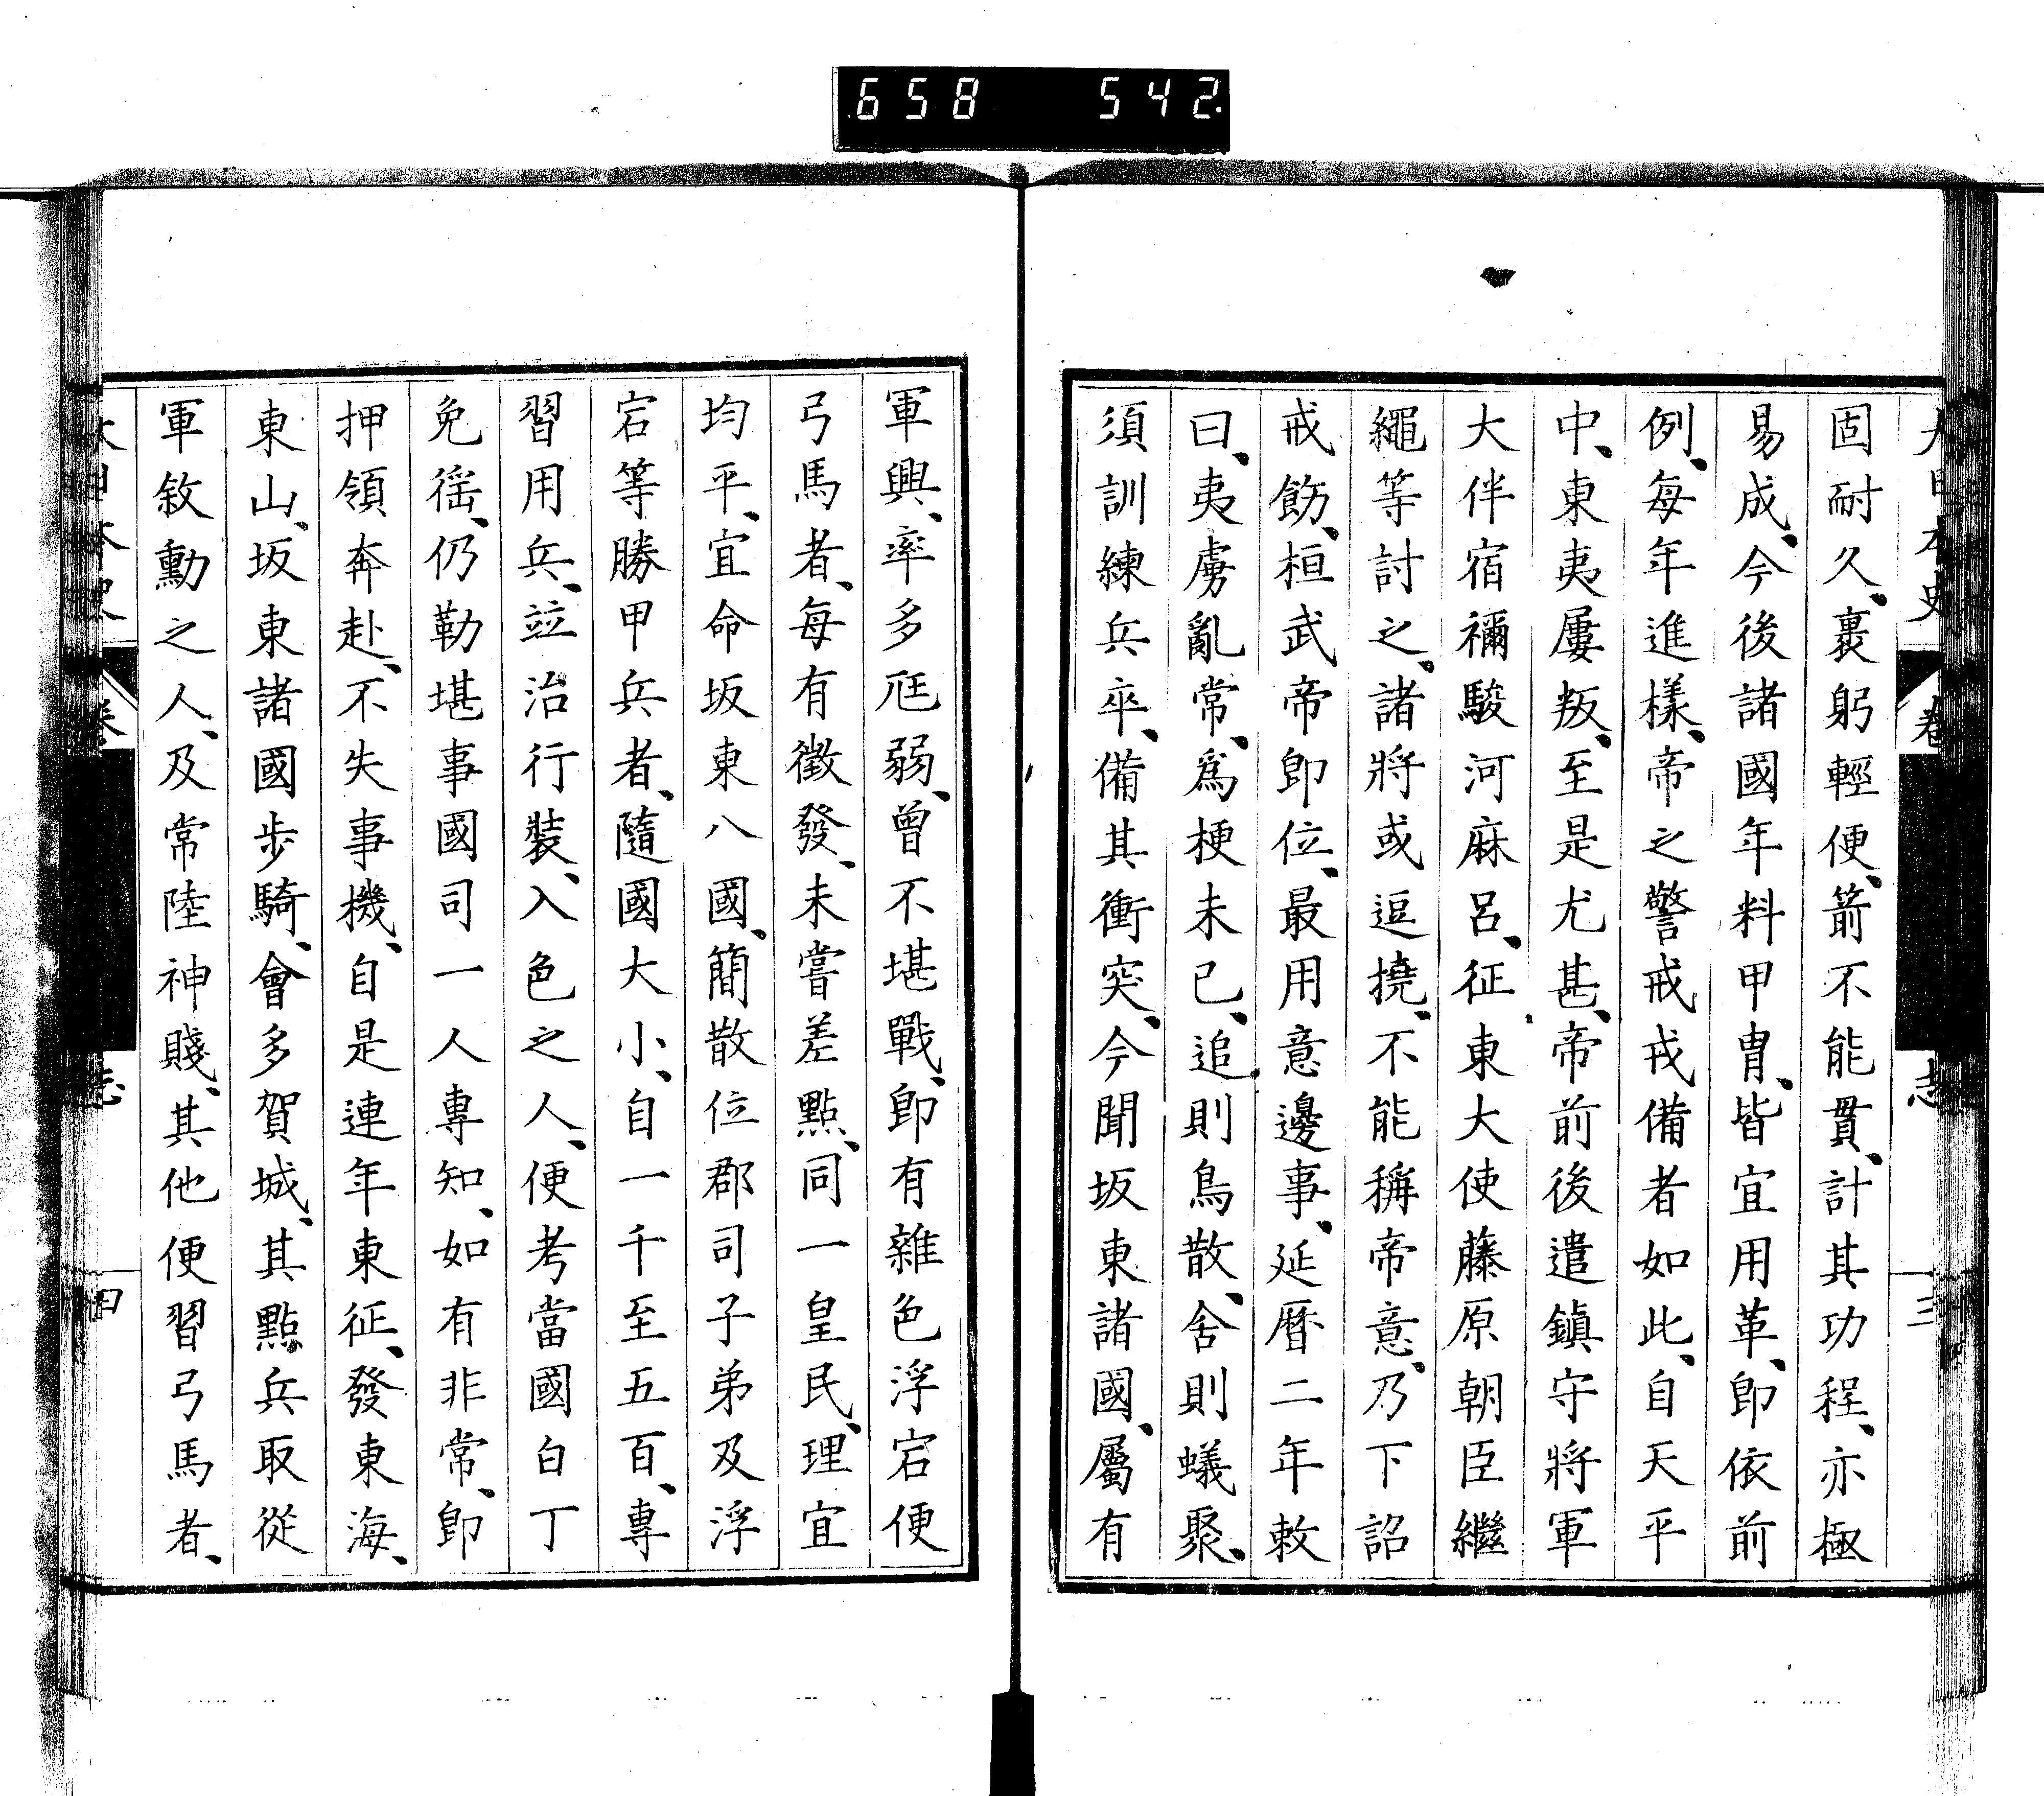 658 542
大日本史 卷 志 三
固耐久、裹躬輕便、箭不能貫、計其功程、亦極
易成、今後諸國年料甲冑、皆宜用革、卽依前
例、每年進樣、帝之警戒戎備者如此、自天平
中、東夷屢叛、至是尤甚、帝前後遣鎮守將軍
大伴宿禰駿河麻呂、征東大使藤原朝臣繼
繩等討之、諸將或逗撓、不能稱帝意、乃下詔
戒飭、桓武帝卽位、最用意邊事、延曆二年敕
曰、夷虜亂常、爲梗未已、追則鳥散、舍則蟻聚、
須訓練兵卒、備其衝突、今聞坂東諸國、屬有
軍興、率多尫弱、曾不堪戰、卽有雜色浮宕便
弓馬者、每有徵發、未嘗差點、同一皇民、理宜
均平、宜命坂東八國、簡散位郡司子弟及浮
宕等勝甲兵者、隨國大小、自一千至五百、專
習用兵、竝治行裝、入色之人、便考當國白丁
免徭、仍勒堪事國司一人專知、如有非常、卽
押領奔赴、不失事機、自是連年東征、發東海、
東山、坂東諸國步騎、會多賀城、其點兵取從
軍敘勳之人、及常陸神賤、其他便習弓馬者、
大日本史 卷 志 四